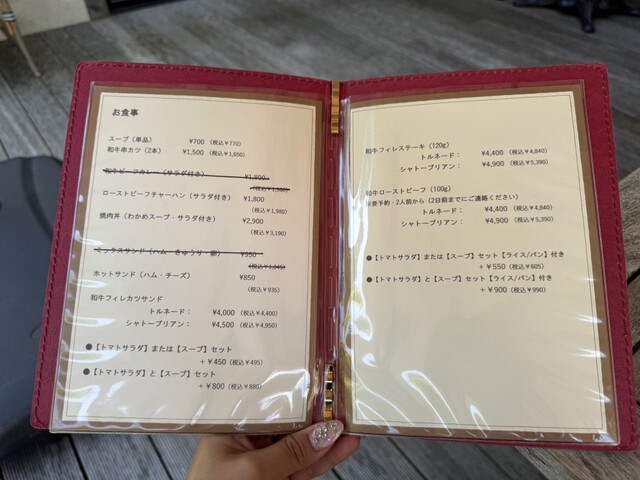 お食事
スープ（単品） ¥700（税込¥770）
和牛串カツ（2本） ¥1,500（税込¥1,650）
和牛ビーフカレー（サラダ付き） ¥1,800
ローストビーフチャーハン（サラダ付き） ¥1,800
（税込¥1,980）
焼肉丼（わかめスープ・サラダ付き） ¥2,900
（税込¥3,190）
ミックスサンド（ハム・きゅうり・卵） ¥950
（税込¥1,045）
ホットサンド（ハム・チーズ） ¥850
（税込¥935）
和牛フィレカツサンド
トルネード： ¥4,000（税込¥4,400）
シャトーブリアン： ¥4,500（税込¥4,950）
●【トマトサラダ】または【スープ】セット
+¥450（税込¥495）
●【トマトサラダ】と【スープ】セット
+¥800（税込¥880）
和牛フィレステーキ（120g）
トルネード： ¥4,400（税込¥4,840）
シャトーブリアン： ¥4,900（税込¥5,390）
和牛ローストビーフ（100g）
※要予約・2人前から（2日前までにご連絡ください）
トルネード： ¥4,400（税込¥4,840）
シャトーブリアン： ¥4,900（税込¥5,390）
●【トマトサラダ】または【スープ】セット【ライス/パン】付き
+¥550（税込¥605）
●【トマトサラダ】と【スープ】セット【ライス/パン】付き
+¥900（税込¥990）